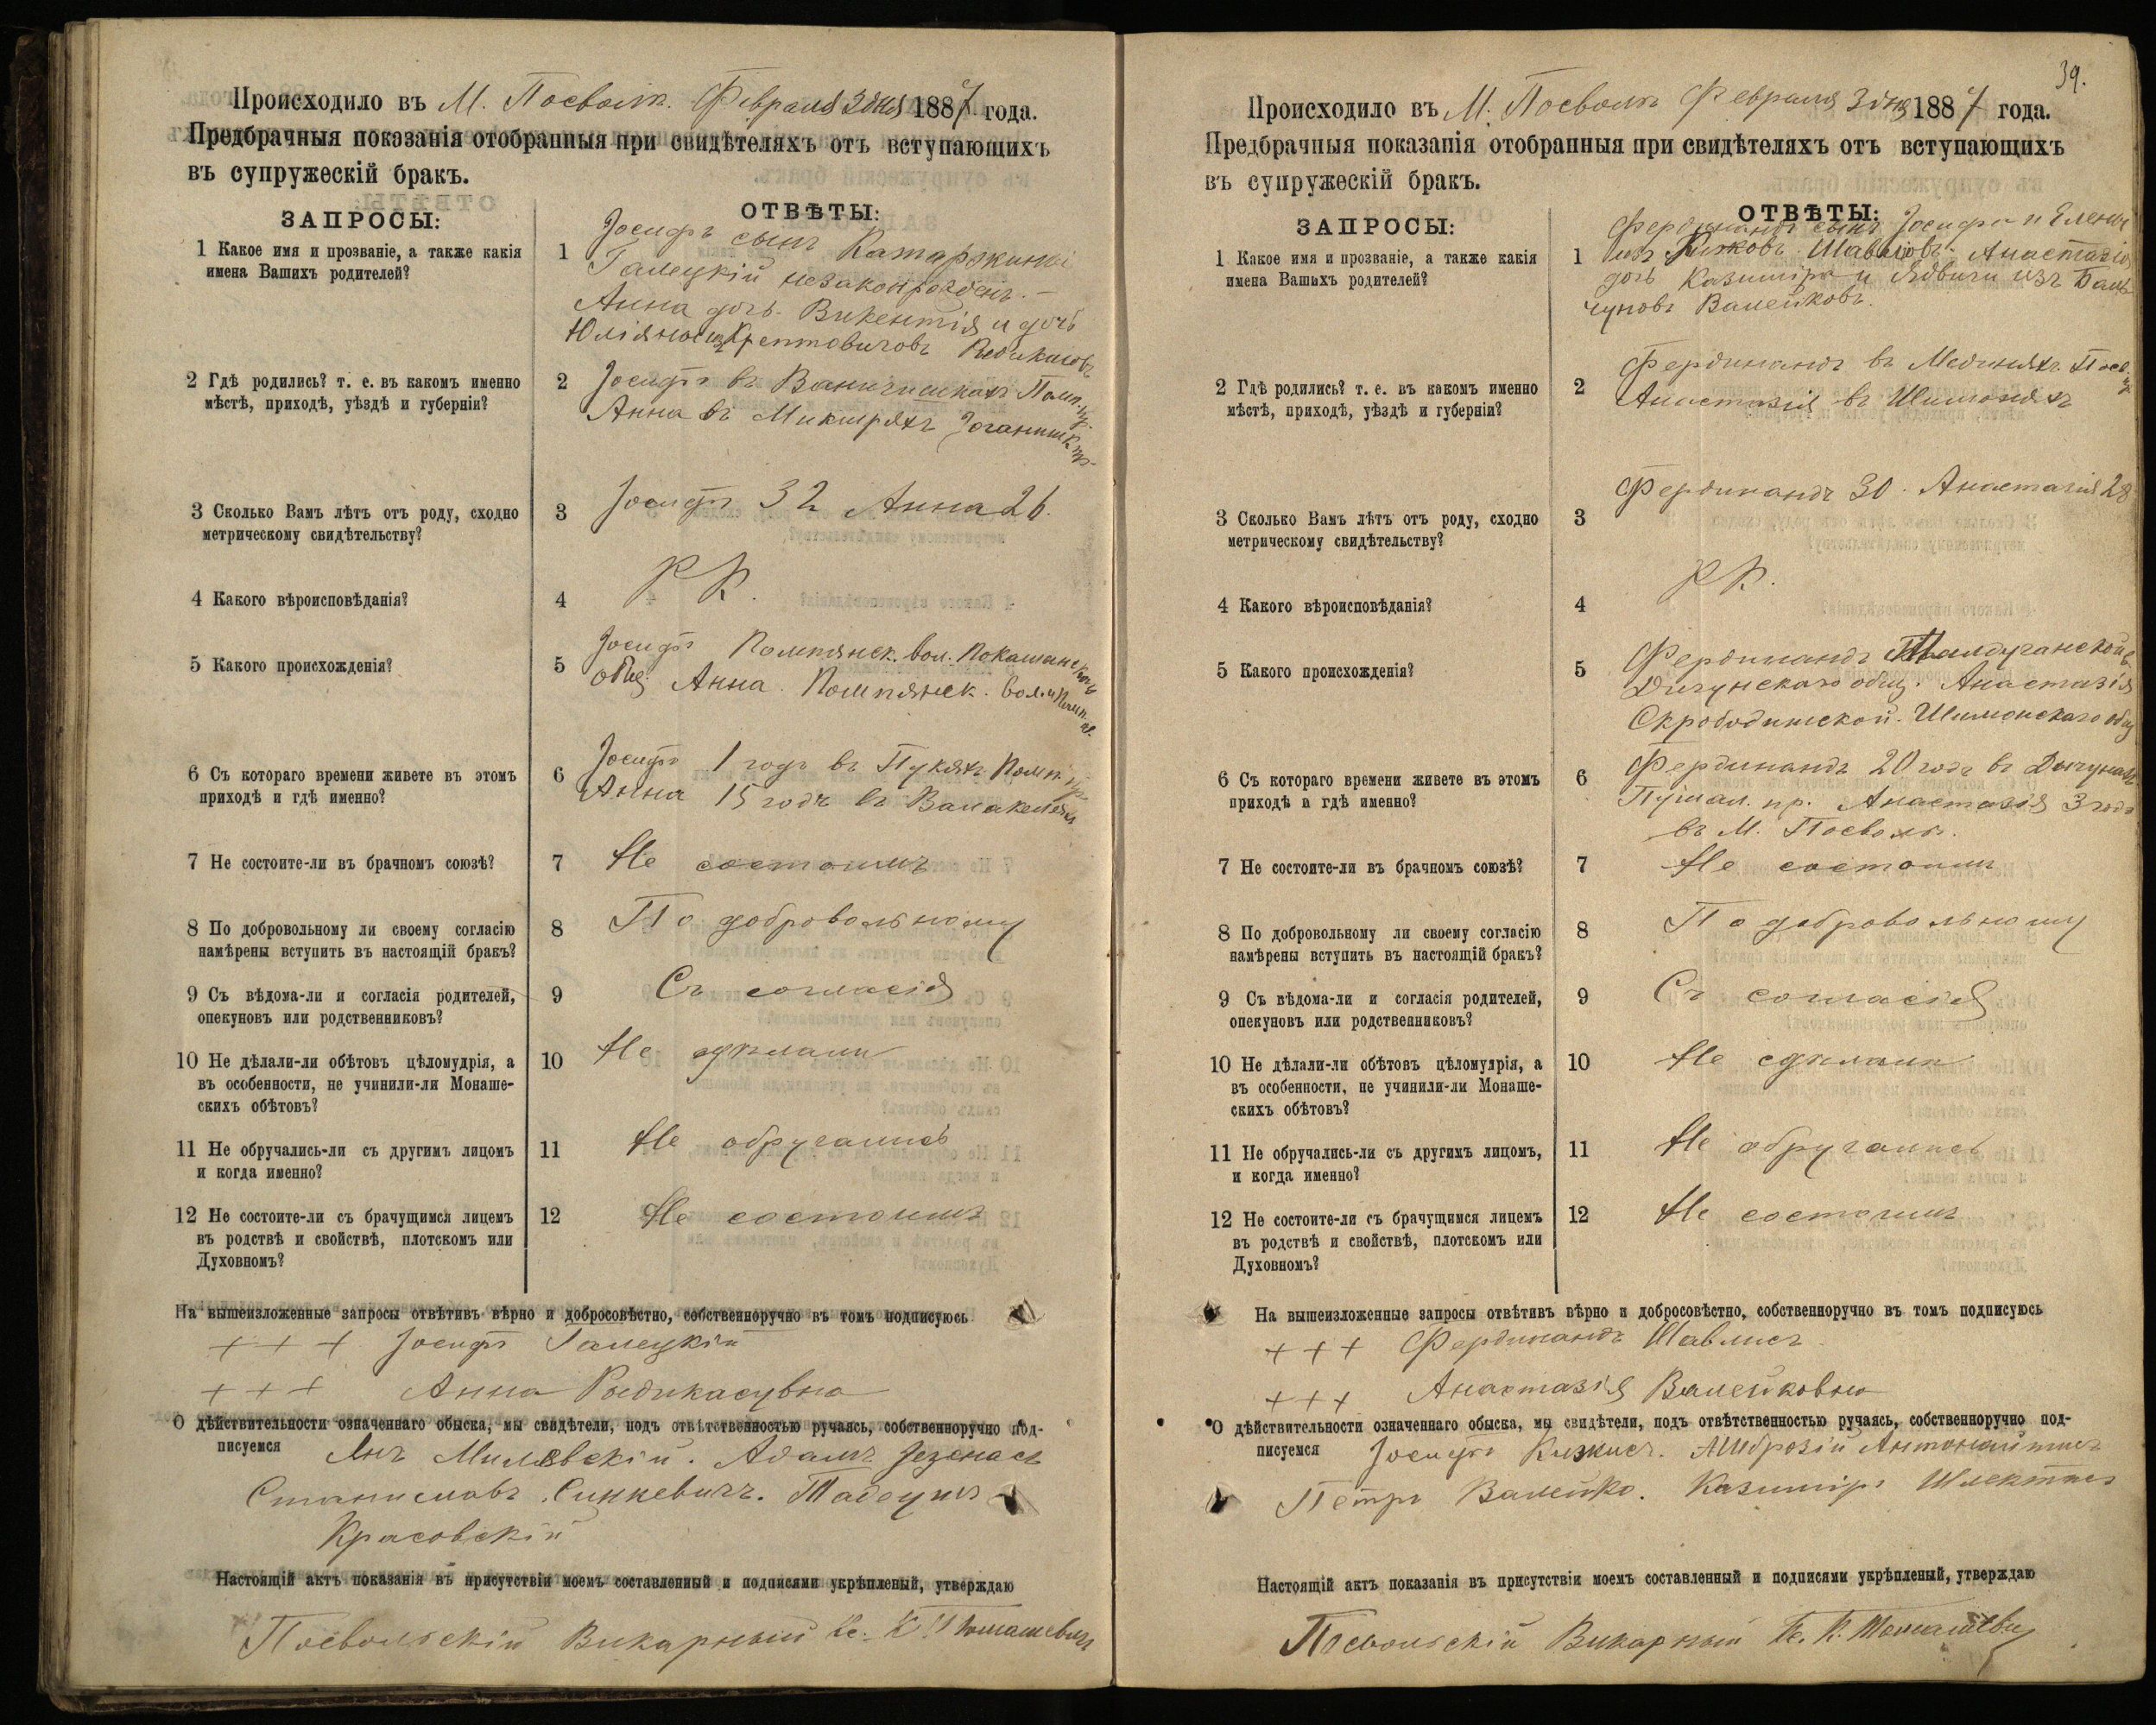 Происходило въ М. Посволѣ. Февраля 3 дня 1887 года.
Предбрачныя показанія отобранныя при свидѣтеляхъ отъ вступающихъ
въ супружескій бракъ.
ЗАПРОСЫ:
ОТВѢТЫ:
1 Какое имя и прозваніе, а также какія
имена Вашихъ родителей?
1 Іосифъ сынъ Катаржины
Галецкій незаконрожден. —
Анна дочь Викентія и дочь
Юліяны изъ
2 Гдѣ родились? т. е. въ какомъ именно
мѣстѣ, приходѣ, уѣздѣ и губерніи?
2 Іосифъ въ
Анна въ
3 Сколько Вамъ лѣтъ отъ роду, сходно
метрическому свидѣтельству?
3 Іосифъ 32 Анна 26.
4 Какого вѣроисповѣданія?
4 Р К.
5 Какого происхожденія?
5 Іосифъ Помпянск. вол.
общ Анна. Помпянск. вол.
6 Съ котораго времени живете въ этомъ
приходѣ и гдѣ именно?
6 Іосифъ 1 годъ въ
Анна 15 годъ въ
7 Не состоите-ли въ брачномъ союзѣ?
7 Не состоимъ
8 По добровольному ли своему согласію
намѣрены вступить въ настоящій бракъ?
8 По добровольному
9 Съ вѣдома-ли и согласія родителей,
опекуновъ или родственниковъ?
9 Съ согласія
10 Не дѣлали-ли обѣтовъ цѣломудрія, а
въ особенности, не учинили-ли Монаше-
скихъ обѣтовъ?
10 Не сдѣлали
11 Не обручались-ли съ другимъ лицомъ
и когда именно?
11 Не обручались
12 Не состоите-ли съ брачущимся лицемъ
въ родствѣ и свойствѣ, плотскомъ или
Духовномъ?
12 Не состоимъ
На вышеизложенные запросы отвѣтивъ вѣрно и добросовѣстно, собственноручно въ томъ подписуюсь
+ + + Іосифъ Галецкій
+ + + Анна
О дѣйствительности означеннаго обыска, мы свидѣтели, подъ отвѣтственностью ручаясь, собственноручно под-
писуемся Янъ Милевскій. Адамъ
Станиславъ Синкевичъ. Тадеушъ
Красовскій
Настоящій актъ показанія въ присутствіи моемъ составленный и подписями укрѣпленый, утверждаю
Посвольскій Викарный Кс. К Томашевичъ
39.
Происходило въ М. Посволѣ Февраля 3 дня 1887 года.
Предбрачныя показанія отобранныя при свидѣтеляхъ отъ вступающихъ
въ супружескій бракъ.
ЗАПРОСЫ:
ОТВѢТЫ:
1 Какое имя и прозваніе, а также какія
имена Вашихъ родителей?
Фердинандъ сынъ Іосифа и Елены
1 изъ Анастазія
дочь Казиміра и Ядвиги изъ
Валейковъ.
2 Гдѣ родились? т. е. въ какомъ именно
мѣстѣ, приходѣ, уѣздѣ и губерніи?
Фердинандъ въ
2 Анастазія въ
3 Сколько Вамъ лѣтъ отъ роду, сходно
метрическому свидѣтельству?
3 Фердинандъ 30. Анастазія 28
4 Какого вѣроисповѣданія?
4 Р К.
5 Какого происхожденія?
5 Фердинандъ
общ. Анастазія
Скрободишской. Шимонскаго общ
6 Съ котораго времени живете въ этомъ
приходѣ и гдѣ именно?
6 Фердинандъ 20 годъ въ
пр. Анастазія 3 годъ
въ М. Посволѣ.
7 Не состоите-ли въ брачномъ союзѣ?
7 Не состоимъ
8 По добровольному ли своему согласію
намѣрены вступить въ настоящій бракъ?
8 По добровольному
9 Съ вѣдома-ли и согласія родителей,
опекуновъ или родственниковъ?
9 Съ согласія
10 Не дѣлали-ли обѣтовъ цѣломудрія, а
въ особенности, не учинили-ли Монаше-
скихъ обѣтовъ?
10 Не сдѣлали
11 Не обручались-ли съ другимъ лицомъ,
и когда именно?
11 Не обручались
12 Не состоите-ли съ брачущимся лицемъ
въ родствѣ и свойствѣ, плотскомъ или
Духовномъ?
12 Не состоимъ
На вышеизложенные запросы отвѣтивъ вѣрно и добросовѣстно, собственноручно въ томъ подписуюсь
+ + + Фердинандъ Шавлисъ
+ + + Анастазія Валейковна
О дѣйствительности означеннаго обыска, мы свидѣтели, подъ отвѣтственностью ручаясь, собственноручно под-
писуемся Іосифъ Амброзій Антонайтисъ
Петръ Валейко. Казиміръ
Настоящій актъ показанія въ присутствіи моемъ составленный и подписями укрѣпленый, утверждаю
Посвольскій Викарный Кс. К. Томашевич